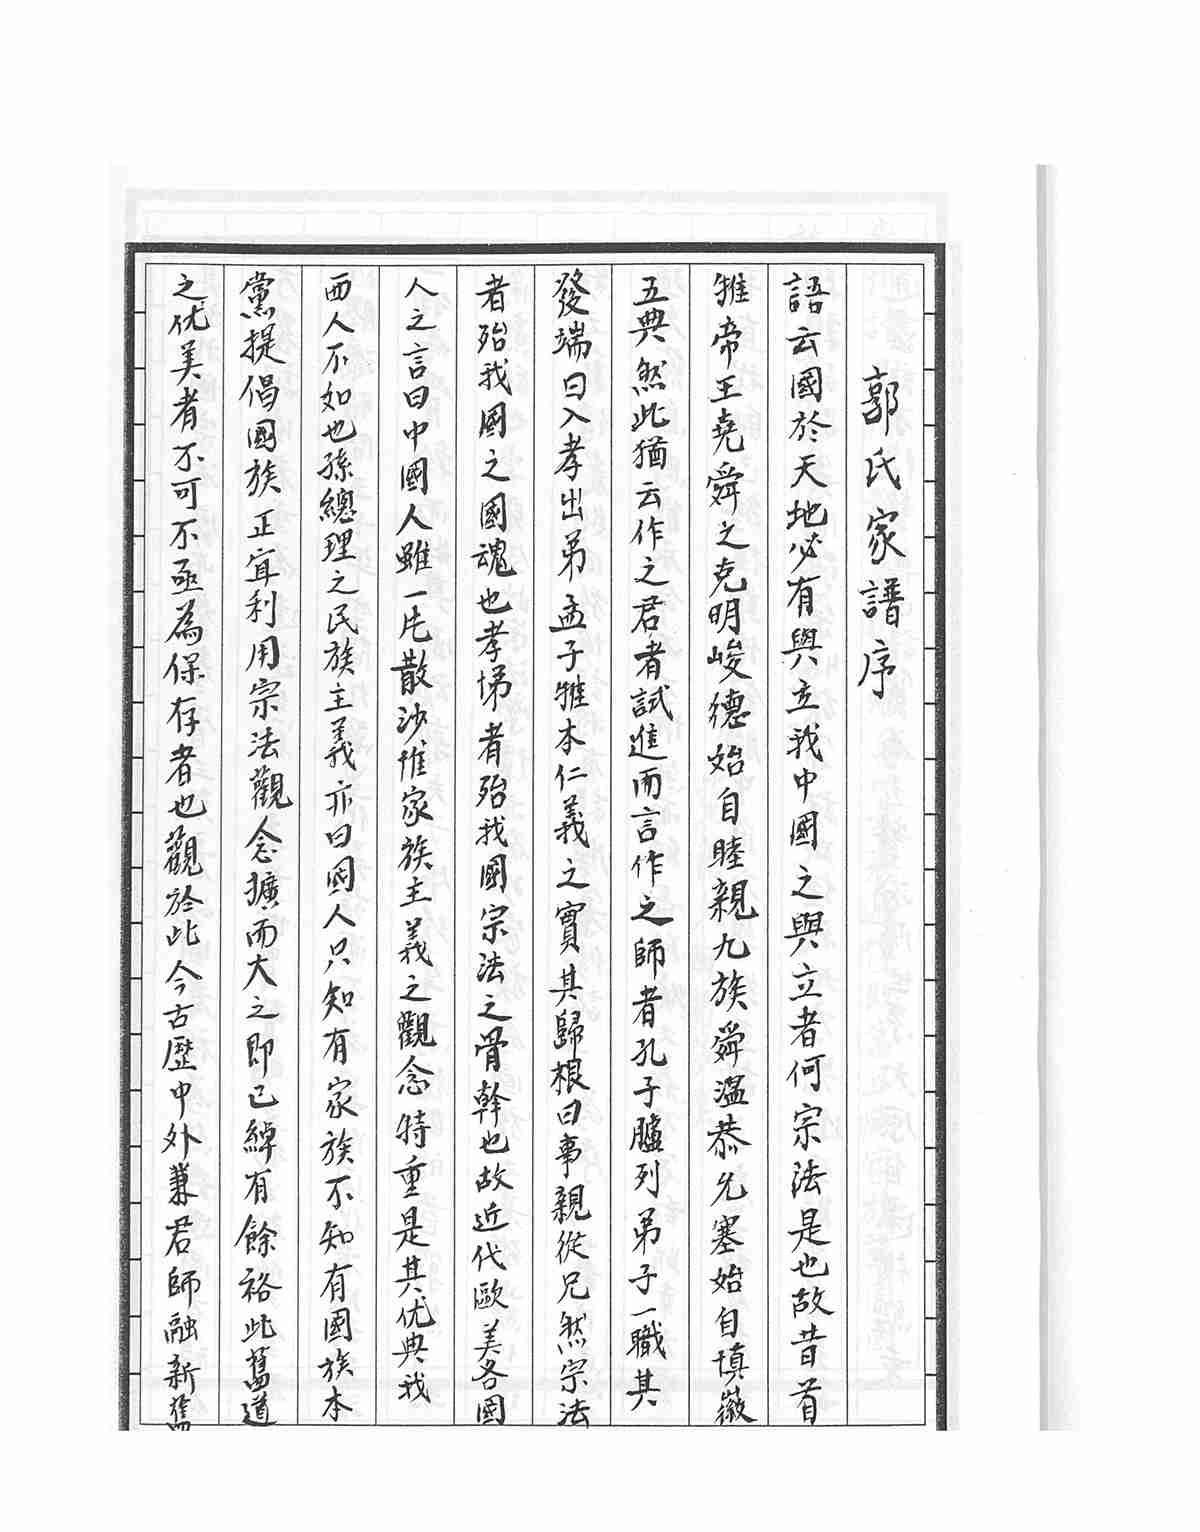 郭氏家譜序
語云國於天地必有與立我中國之與立者何宗法是也故昔者
雅帝王堯舜之克明峻德始自睦親九族舜溫恭允塞始自慎徽
五典然此猶云作之君者試進而言作之師者孔子臚列弟子一職其
發端曰入孝出弟孟子雅本仁義之實其歸根曰事親從兄然宗法
者殆我國之國魂也孝悌者殆我國宗法之骨幹也故近代歐美各國
人之言曰中國人雖一片散沙惟家族主義之觀念特重是其优典我
西人不如也孫總理之民族主義亦曰國人只知有家族不知有國族本
黨提倡國族正宜利用宗法觀念擴而大之即已綽有餘裕此舊道
之优美者不可不亟為保存者也觀於此今古歷中外兼君師融新舊